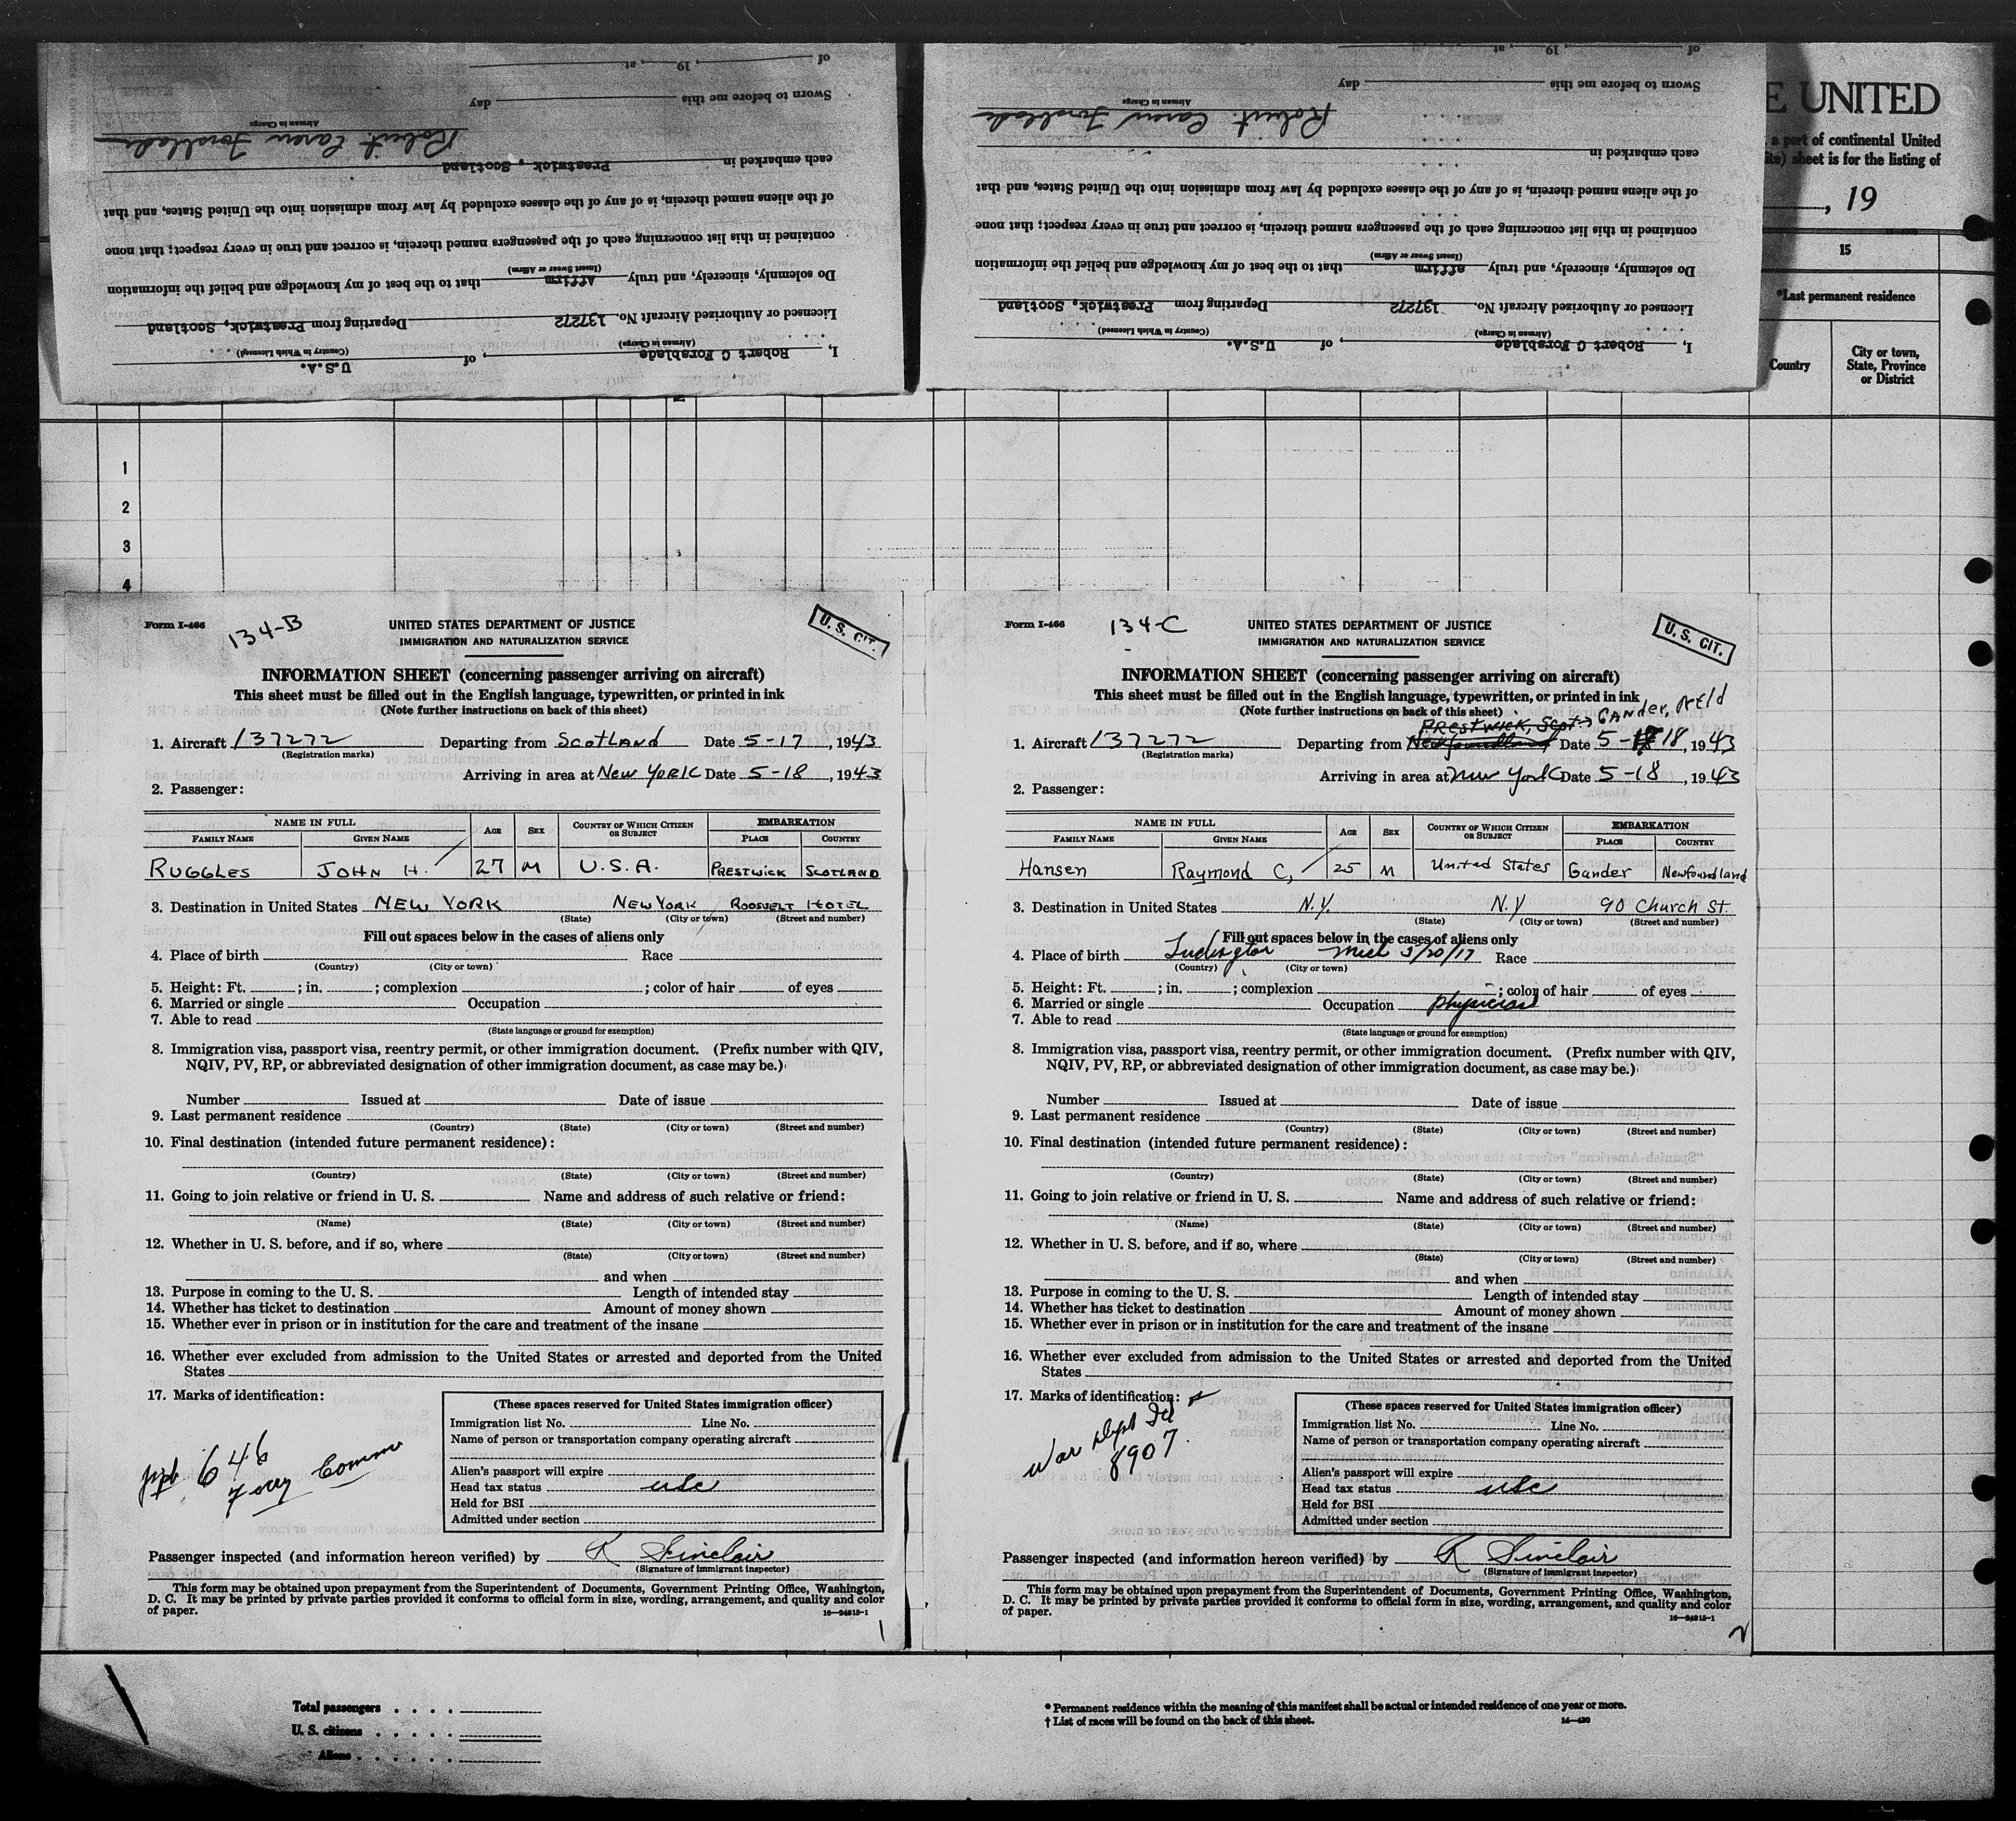 of , 19 , at,
Sworn to before me this day
Airman in Charge
Robert Caren Forsblade
each embarked in Prestwick, Scotland
of the aliens named therein, is of any of the classes excluded by law from admission into the United States, and that
contained in this list concerning each of the passengers named therein, is correct and true in every respect; that none
(Insert Swear or Affirm)
Do solemnly, sincerely, and truly Affirm that to the best of my knowledge and belief the information
Licensed or Authorized Aircraft No. 137272 Departing from Prestwick, Scotland
(Airman in Charge) (Country in Which Licensed)
I, Robert C Forsblade, of U.S.A.
of , 19 , at
Sworn to before me this day
Airman in Charge
Robert Caren Forsblade
each embarked in
of the aliens named therein, is of any of the classes excluded by law from admission into the United States, and that
contained in this list concerning each of the passengers named therein, is correct and true in every respect; that none
(Insert Swear or Affirm)
Do solemnly, sincerely, and truly affirm that to the best of my knowledge and belief the information
Licensed or Authorized Aircraft No. 137272 Departing from Prestwick, Scotland
(Airman in Charge) (Country in Which Licensed)
I, Robert C Forsblade, of U.S.A.
E UNITED
a part of continental United
sheet is for the listing of
, 19
15
*Last permanent residence
Country
City or town,
State, Province
or District
1
2
3
4
Form I-466
134-B
UNITED STATES DEPARTMENT OF JUSTICE
IMMIGRATION AND NATURALIZATION SERVICE
U. S. CIT.
INFORMATION SHEET (concerning passenger arriving on aircraft)
This sheet must be filled out in the English language, typewritten, or printed in ink
(Note further instructions on back of this sheet)
1. Aircraft 137272 Departing from Scotland Date 5-17, 1943
(Registration marks)
Arriving in area at New York Date 5-18, 1943
2. Passenger:
NAME IN FULL
FAMILY NAME GIVEN NAME AGE SEX COUNTRY OF WHICH CITIZEN OR SUBJECT EMBARKATION PLACE COUNTRY
RUGGLES JOHN H. 27 M U.S.A. PRESTWICK SCOTLAND
3. Destination in United States NEW YORK NEW YORK ROOSVELT HOTEL
(State) (City or town) (Street and number)
Fill out spaces below in the cases of aliens only
4. Place of birth Race
(Country) (City or town)
5. Height: Ft. ; in. ; complexion ; color of hair of eyes
6. Married or single Occupation
7. Able to read
(State language or ground for exemption)
8. Immigration visa, passport visa, reentry permit, or other immigration document. (Prefix number with QIV,
NQIV, PV, RP, or abbreviated designation of other immigration document, as case may be.)
Number Issued at Date of issue
9. Last permanent residence
(Country) (State) (City or town) (Street and number)
10. Final destination (intended future permanent residence):
(Country) (State) (City or town) (Street and number)
11. Going to join relative or friend in U. S. Name and address of such relative or friend:
(Name) (State) (City or town) (Street and number)
12. Whether in U. S. before, and if so, where
(State) (City or town) (Street and number)
and when
13. Purpose in coming to the U. S. Length of intended stay
14. Whether has ticket to destination Amount of money shown
15. Whether ever in prison or in institution for the care and treatment of the insane
16. Whether ever excluded from admission to the United States or arrested and deported from the United
States
17. Marks of identification:
646
(These spaces reserved for United States immigration officer)
Immigration list No. Line No.
Name of person or transportation company operating aircraft
Alien's passport will expire
Head tax status usc
Held for BSI
Admitted under section
Passenger inspected (and information hereon verified) by R Sinclair
(Signature of immigrant inspector)
This form may be obtained upon prepayment from the Superintendent of Documents, Government Printing Office, Washington,
D. C. It may be printed by private parties provided it conforms to official form in size, wording, arrangement, and quality and color
of paper.
16—24915-1
1
Form I-466
134-C
UNITED STATES DEPARTMENT OF JUSTICE
IMMIGRATION AND NATURALIZATION SERVICE
U. S. CIT.
INFORMATION SHEET (concerning passenger arriving on aircraft)
This sheet must be filled out in the English language, typewritten, or printed in ink
(Note further instructions on back of this sheet)
Prestwick, Scot → Gander, Nfld
1. Aircraft 137272 Departing from Newfoundland Date 5-18, 1943
(Registration marks)
Arriving in area at New York Date 5-18, 1943
2. Passenger:
NAME IN FULL
FAMILY NAME GIVEN NAME AGE SEX COUNTRY OF WHICH CITIZEN OR SUBJECT EMBARKATION PLACE COUNTRY
Hansen Raymond C, 25 M United States Gander Newfoundland
3. Destination in United States N.Y. N.Y 90 Church St.
(State) (City or town) (Street and number)
Fill out spaces below in the cases of aliens only
4. Place of birth Ludington Mich 3/20/17 Race
(Country) (City or town)
5. Height: Ft. ; in. ; complexion ; color of hair of eyes
6. Married or single Occupation physician
7. Able to read
(State language or ground for exemption)
8. Immigration visa, passport visa, reentry permit, or other immigration document. (Prefix number with QIV,
NQIV, PV, RP, or abbreviated designation of other immigration document, as case may be.)
Number Issued at Date of issue
9. Last permanent residence
(Country) (State) (City or town) (Street and number)
10. Final destination (intended future permanent residence):
(Country) (State) (City or town) (Street and number)
11. Going to join relative or friend in U. S. Name and address of such relative or friend:
(Name) (State) (City or town) (Street and number)
12. Whether in U. S. before, and if so, where
(State) (City or town) (Street and number)
and when
13. Purpose in coming to the U. S. Length of intended stay
14. Whether has ticket to destination Amount of money shown
15. Whether ever in prison or in institution for the care and treatment of the insane
16. Whether ever excluded from admission to the United States or arrested and deported from the United
States
17. Marks of identification:
War Dept Id
8907
(These spaces reserved for United States immigration officer)
Immigration list No. Line No.
Name of person or transportation company operating aircraft
Alien's passport will expire
Head tax status usc
Held for BSI
Admitted under section
Passenger inspected (and information hereon verified) by R Sinclair
(Signature of immigrant inspector)
This form may be obtained upon prepayment from the Superintendent of Documents, Government Printing Office, Washington,
D. C. It may be printed by private parties provided it conforms to official form in size, wording, arrangement, and quality and color
of paper.
16—24915-1
2
Total passengers
U. S. citizens
Aliens
* Permanent residence within the meaning of this manifest shall be actual or intended residence of one year or more.
† List of races will be found on the back of this sheet.